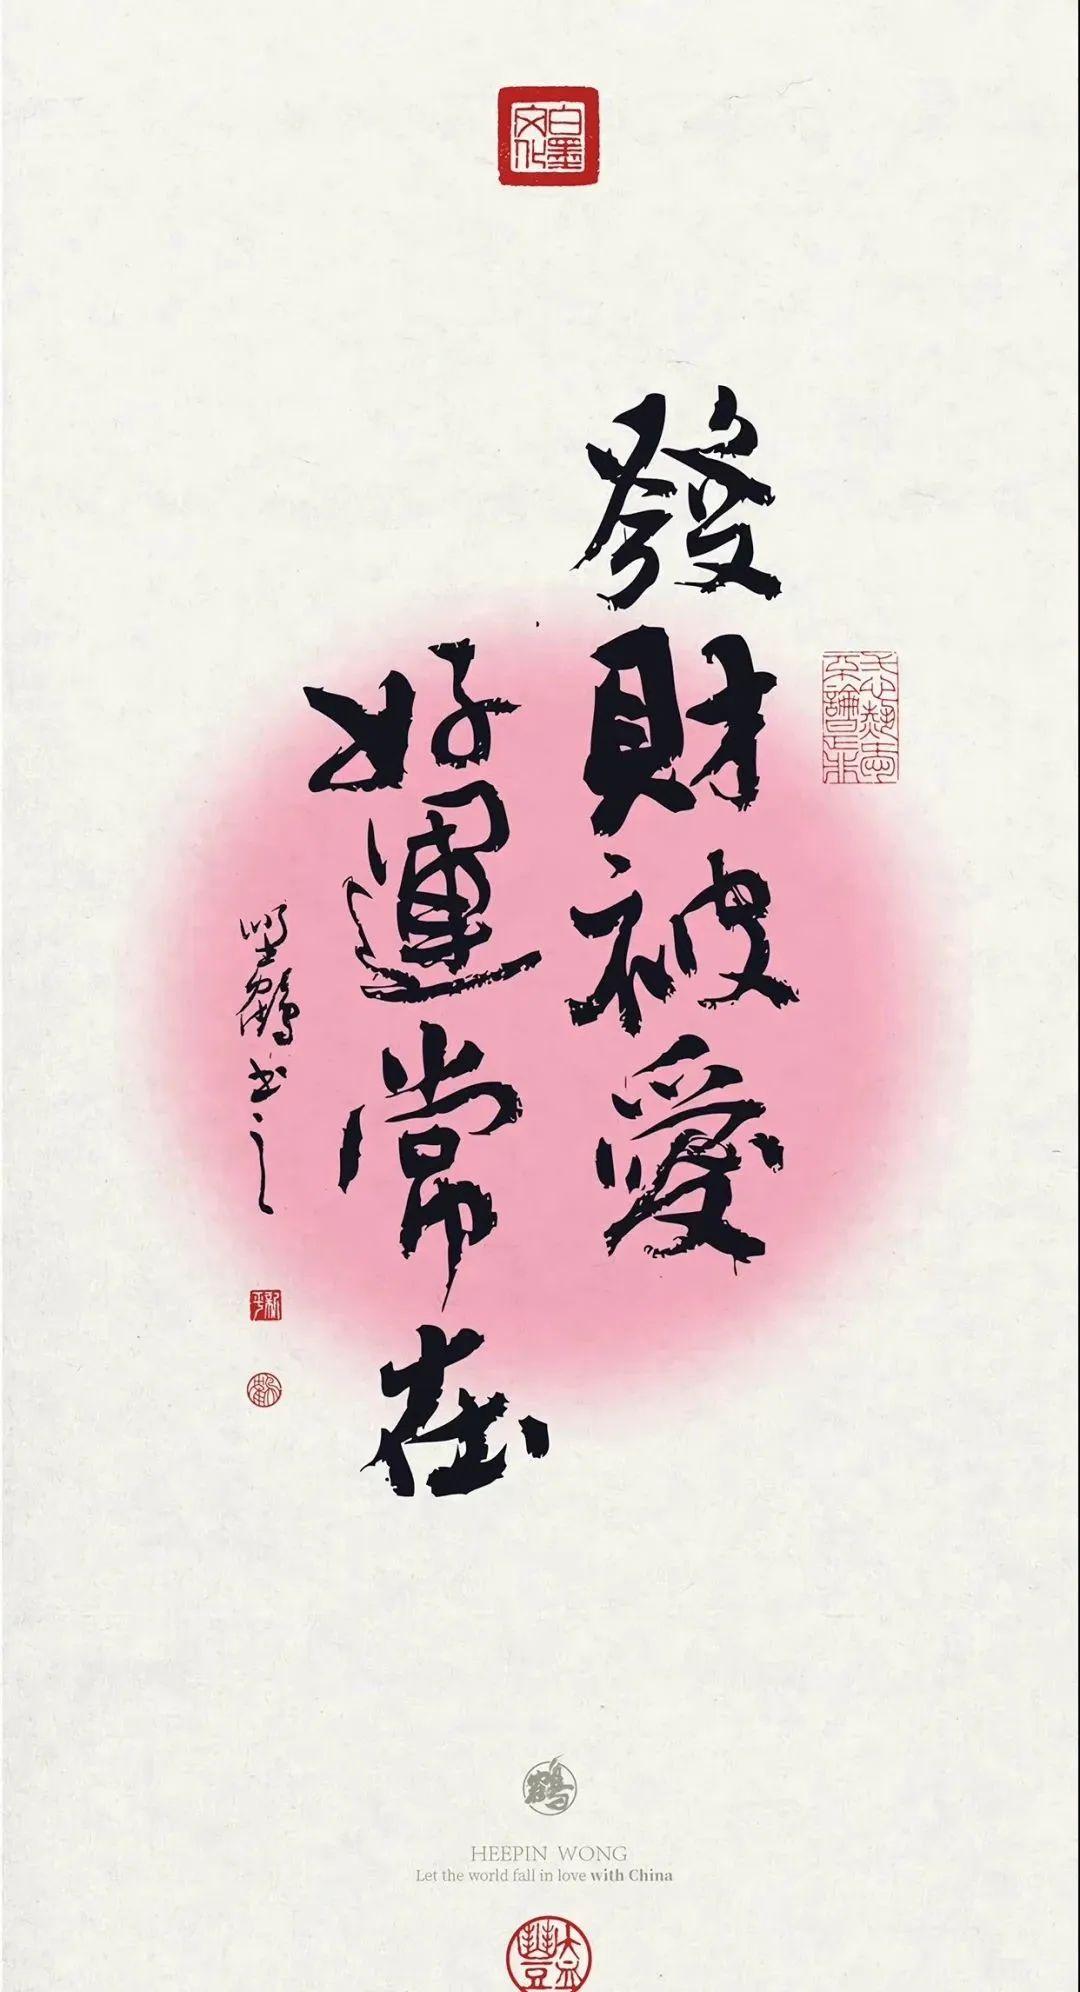 白墨文化
發財被愛
好運常在
鶴書之
鶴
HEEPIN WONG
Let the world fall in love with China